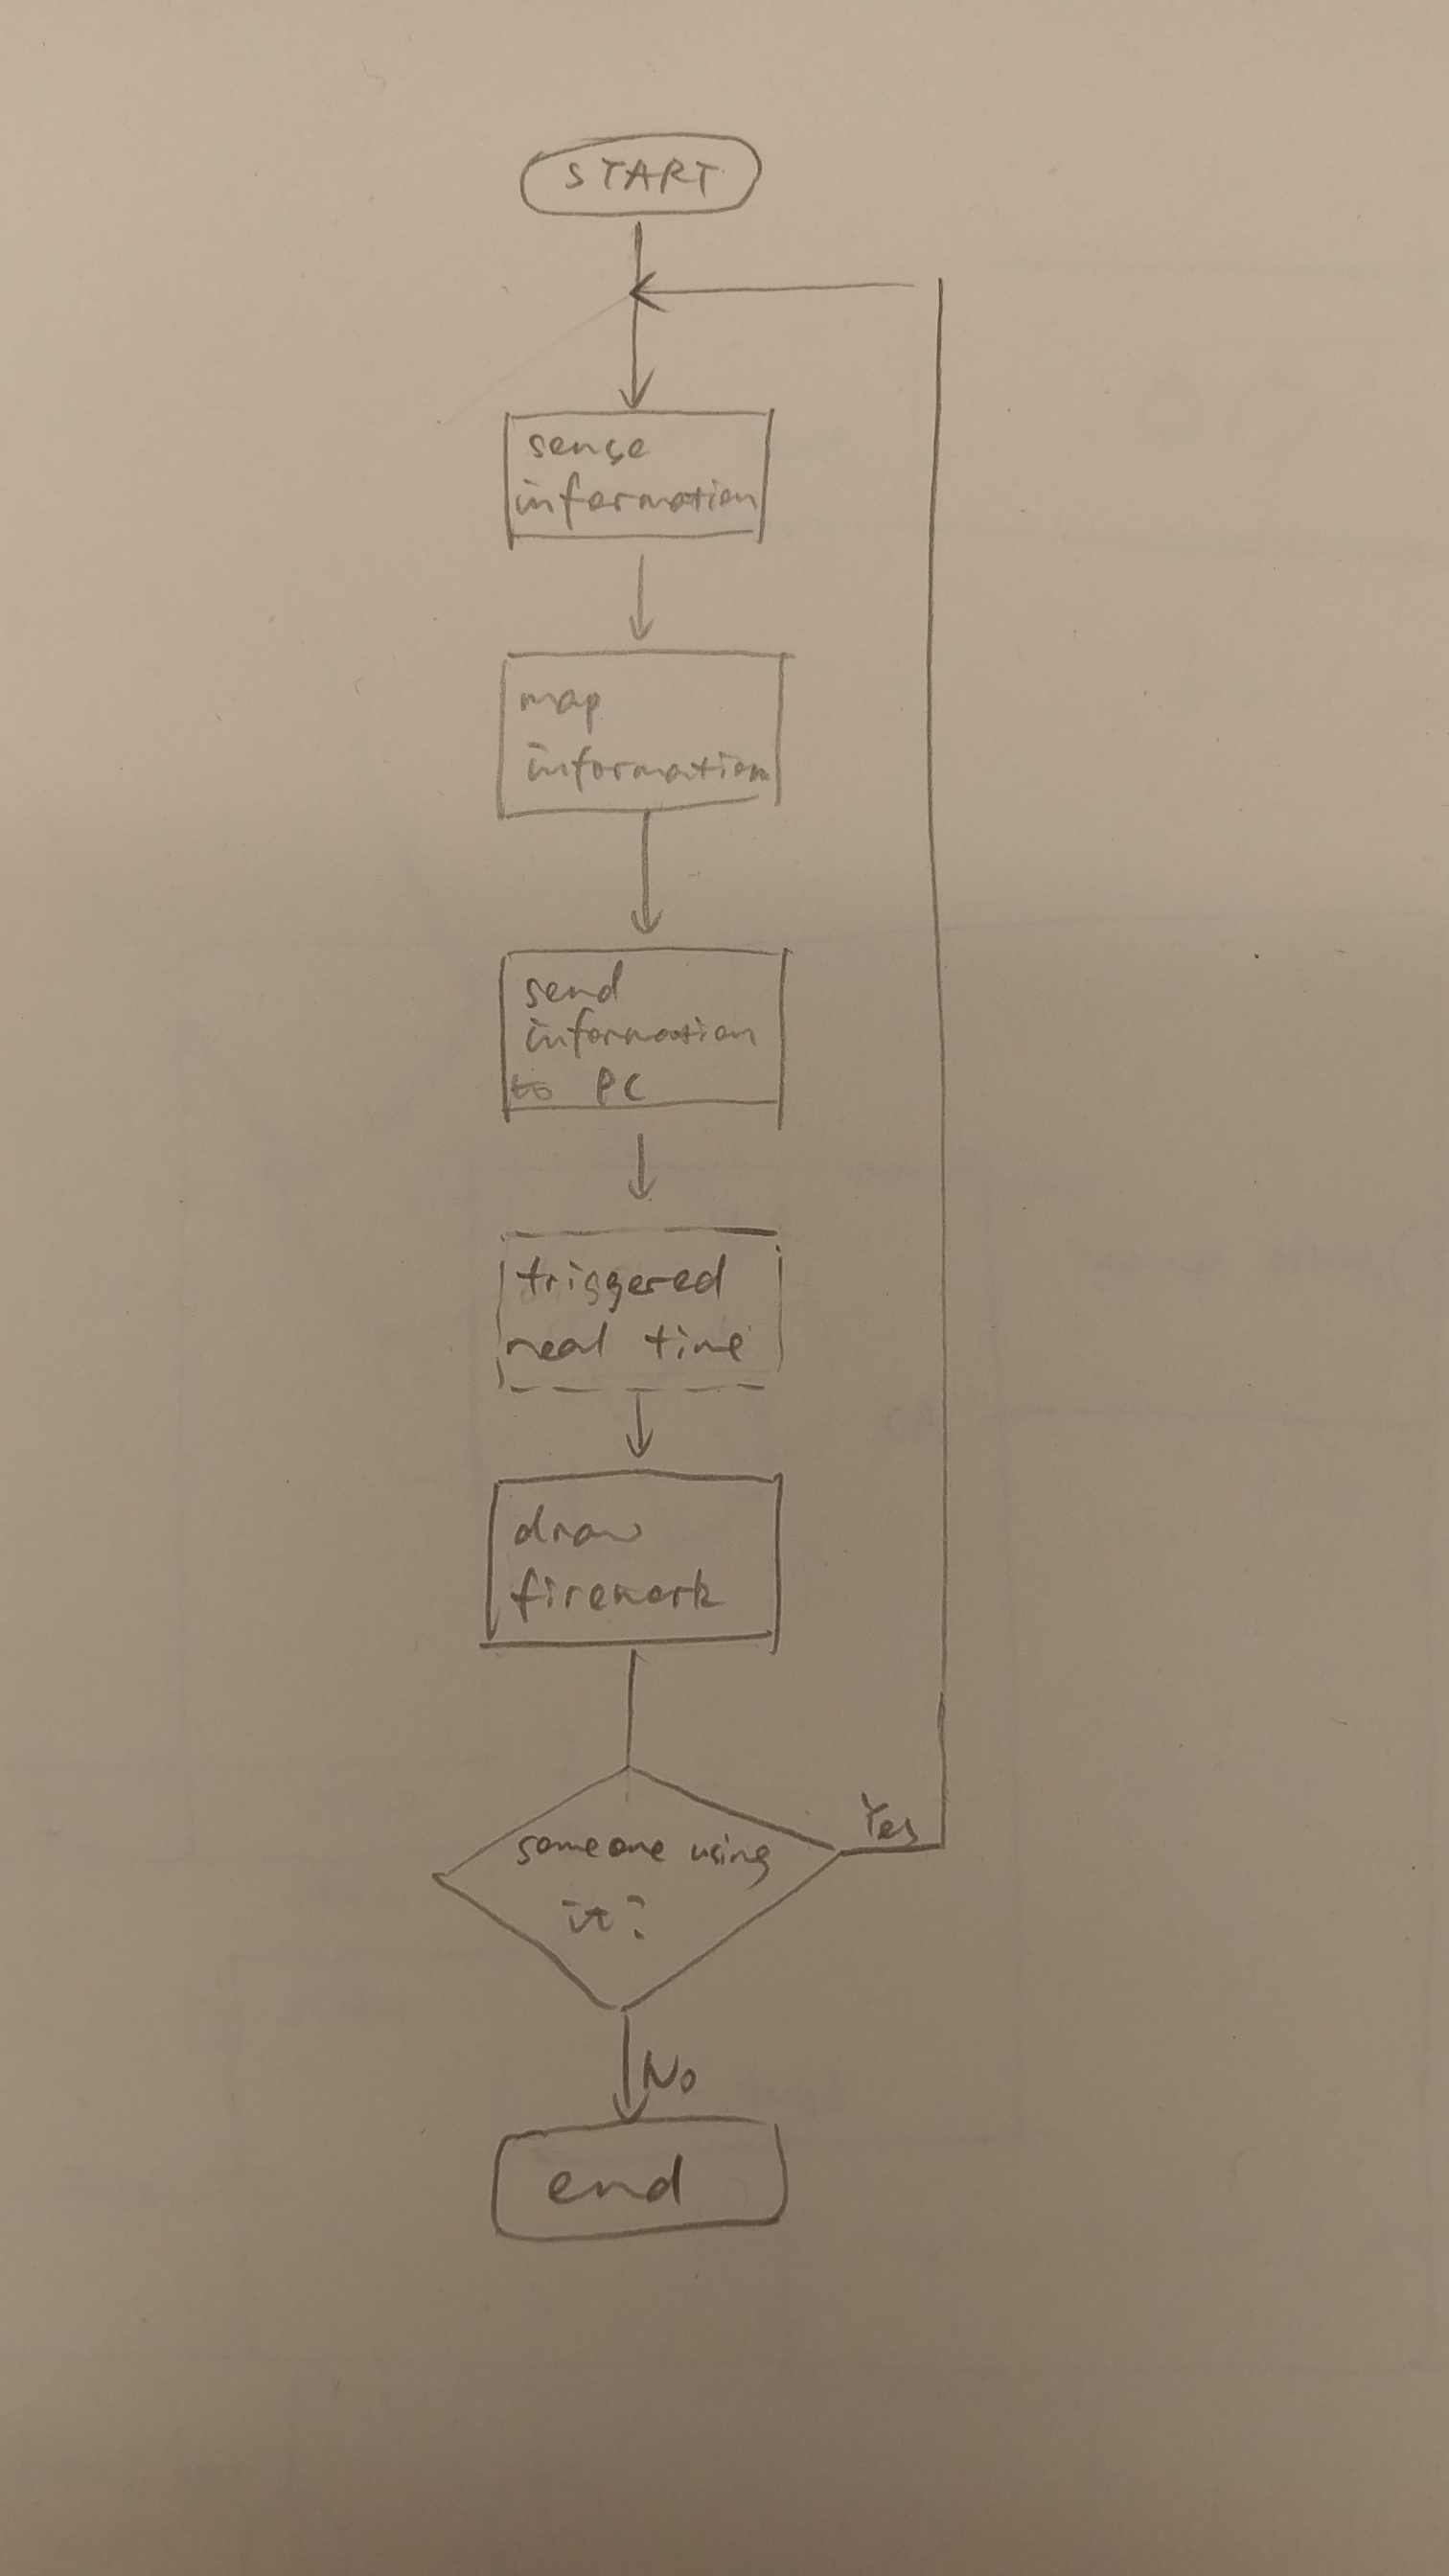 START
sense
information
map
information
send
information
to PC
triggered
real time
draw
firework
someone using
it?
Yes
No
end